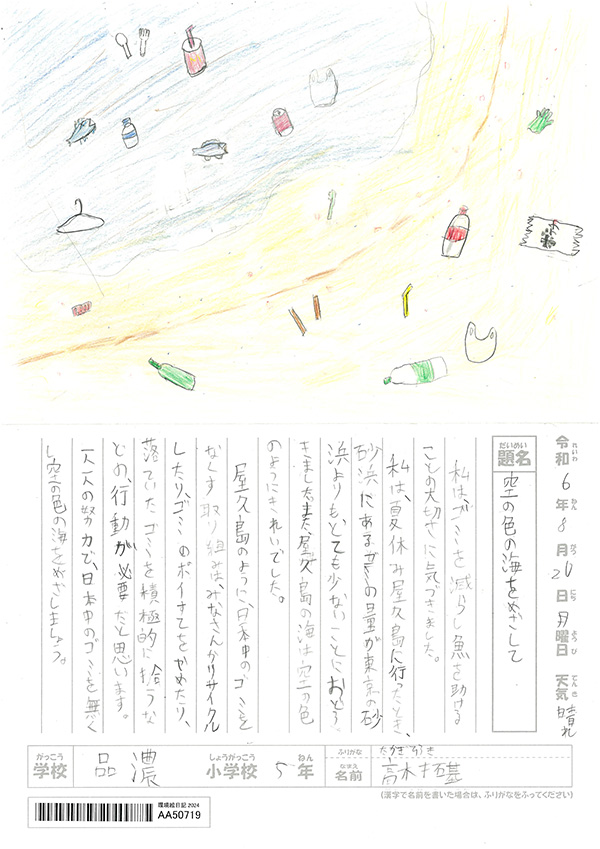 令和6年8月26日月曜日 天気 晴れ
れいわ ねん がつ にち ようび てんき
だいめい
題名 空の色の海をめざして
私は、ゴミを減らし魚を助ける
ことの大切さに気づきました。
私は、夏休み屋久島に行ったとき、
砂浜にあるゴミの量が東京の砂
浜よりも、とても少ないことにおどろ
きました。また、屋久島の海は空の色
のようにきれいでした。
屋久島のように、日本中のゴミを
なくす取り組みは、みなさんがリサイクル
したり、ゴミのポイすてをやめたり、
落ていたゴミを積極的に拾うな
どの、行動が必要だと思います。
一人一人の努力で、日本中のゴミを無く
し空の色の海をめざしましょう。
がっこう しょうがっこう ねん
学校 品濃 小学校 5年
ふりがな たかぎ
なまえ
名前 高木拓
(漢字で名前を書いた場合は、ふりがなをふってください)
環境絵日記 2024
AA50719